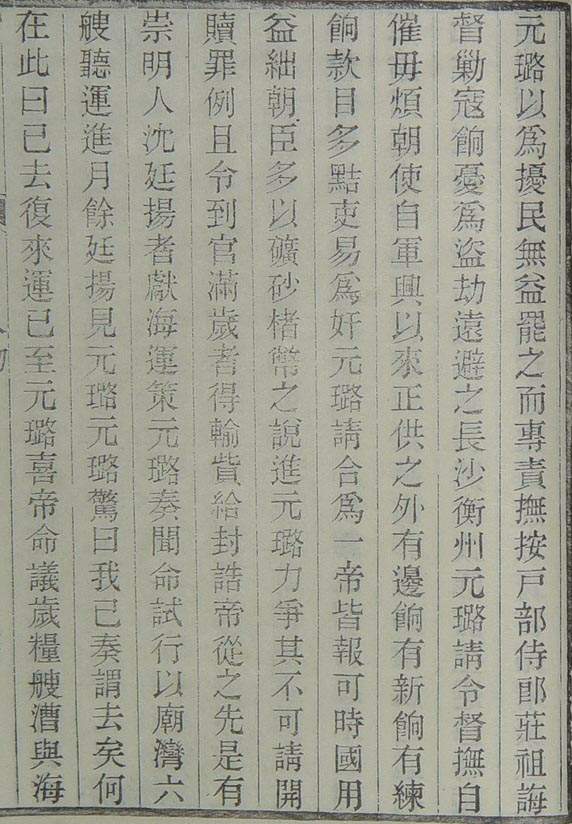 元璐以爲擾民無益罷之而專責撫按戸部侍郎莊祖誨
督勦寇餉憂爲盜劫遠避之長沙衡州元璐請令督撫自
催毋煩朝使自軍興以來正供之外有邊餉有新餉有練
餉款目多黠吏易爲奸元璐請合爲一帝皆報可時國用
益絀朝臣多以礦砂楮幣之說進元璐力爭其不可請開
贖罪例且令到官滿歲者得輸貲給封誥帝從之先是有
崇明人沈廷揚者獻海運策元璐奏聞命試行以廟灣六
艘聽運進月餘廷揚見元璐元璐驚曰我已奏謂去矣何
在此曰已去復來運已至元璐喜帝命議歲糧艘漕與海